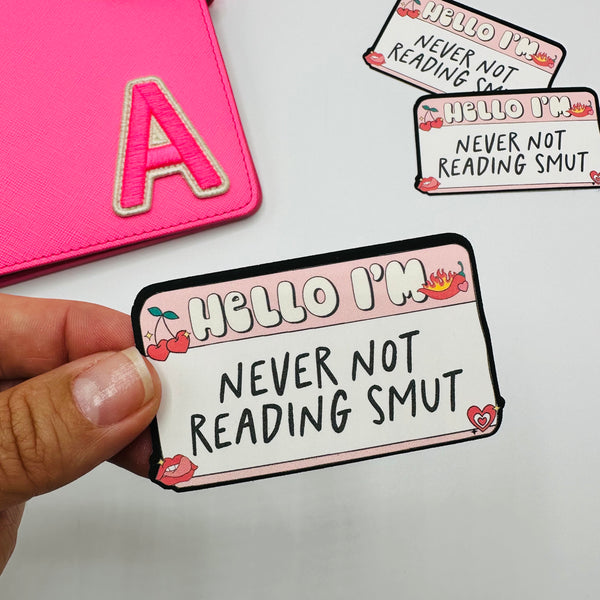 A
HELLO I'M
NEVER NOT
READING SMUT
HELLO I'M
NEVER NOT
READING SMUT
HELLO I'M
NEVER NOT
READING SMUT